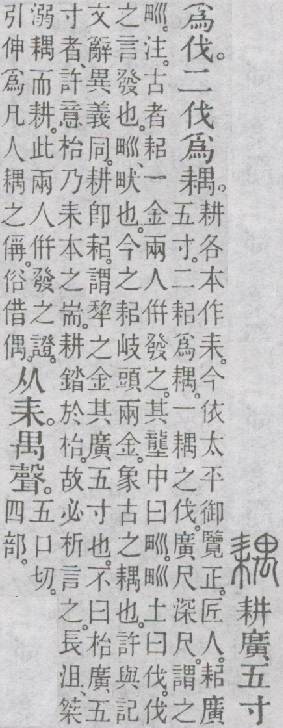 耦 耕廣五寸
爲伐。二伐爲耦。
耕各本作耒。今依太平御覽正。匠人。耜廣
五寸。二耜爲耦。一耦之伐。廣尺深尺謂之
𤰕。注。古者耜一金兩人倂發之。其壟中曰𤰕。𤰕土曰伐。伐
之言發也。𤰕。畎也。今之耜岐頭兩金。象古之耦也。許與記
文辭異義同。耕卽耜。謂犂之金其廣五寸也。不曰枱廣五
寸者。許意枱乃耒本之耑。耕錔於枱。故必析言之。長沮桀
溺耦而耕。此兩人倂發之證。
引伸爲凡人耦之偁。俗借偶。
从耒。禺聲。
五口切。
四部。